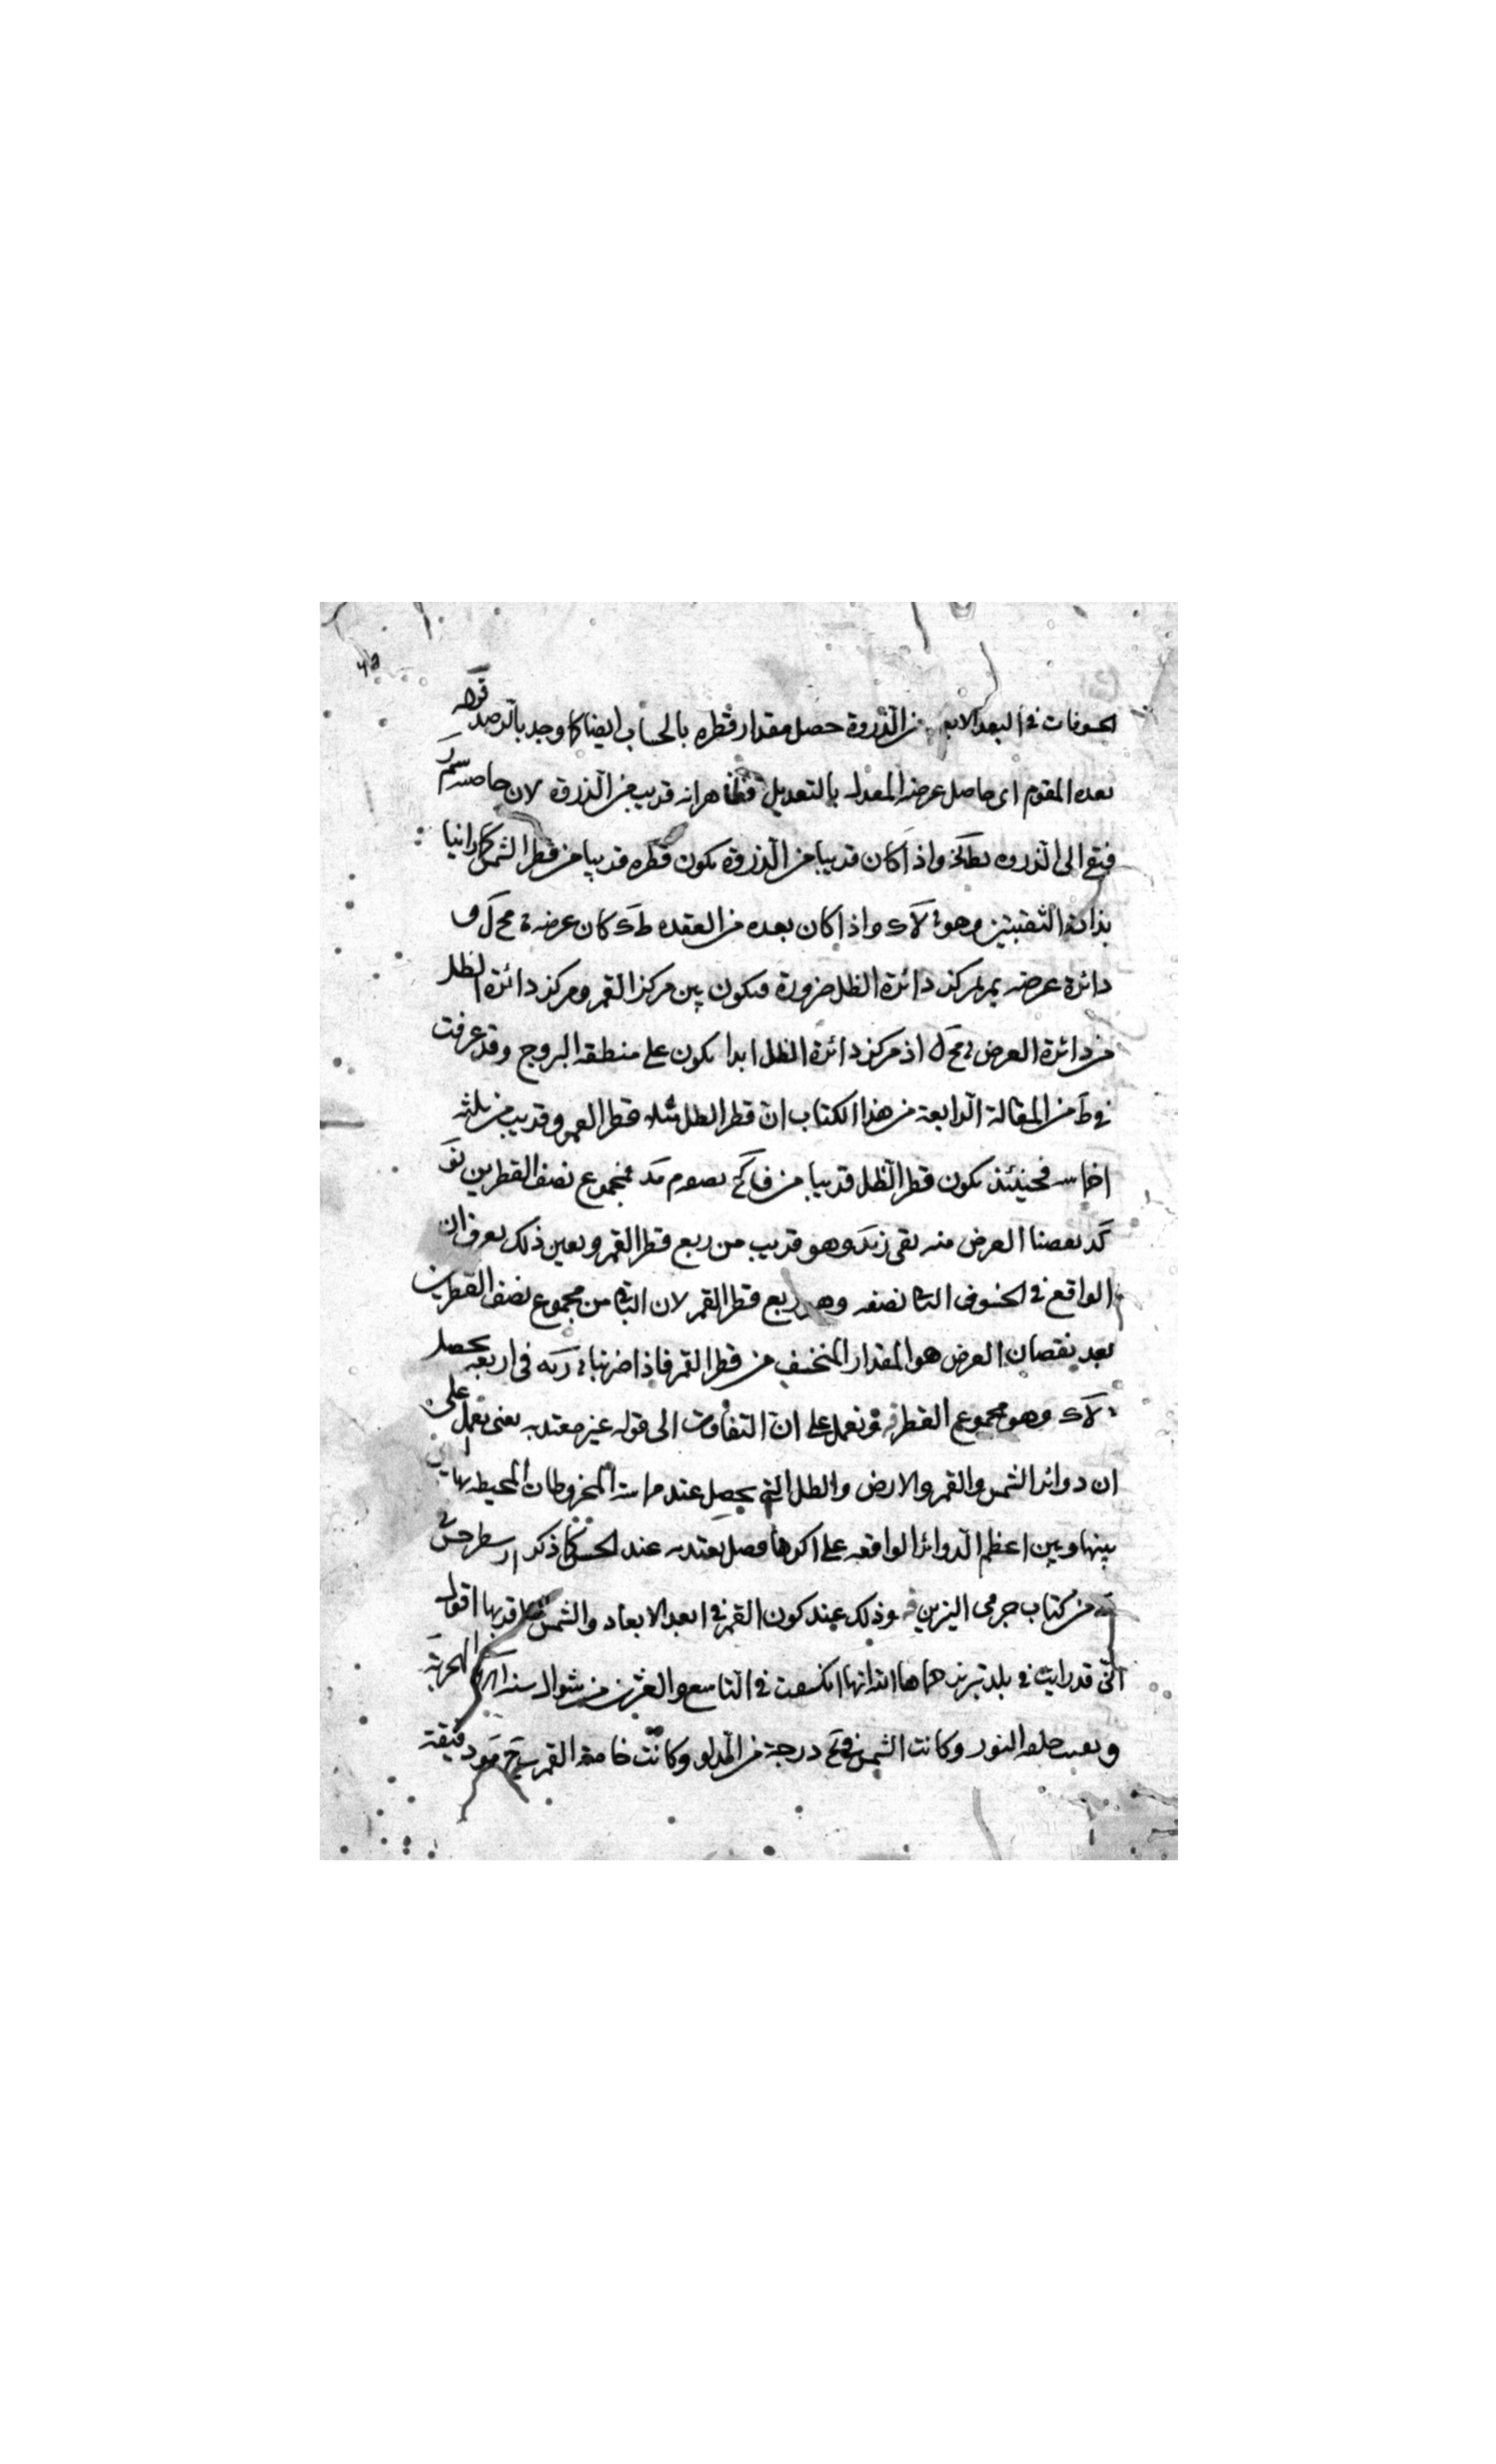 ٤٥
الخسوفات في البعد الابعد من الذروة حصل مقدار قطره بالحساب ايضا كما وجد بالرصد قوله
بعده المقوم اى حاصل عرضه المعدل بالتعديل فظاهر انه قريب من الذروة لان حاصته
فبقى الى الذروه واذا كان قريبا من الذروة يكون قطره قريبا من قطر الشمس كما راينا
بذات الثقبتين وهو ه لا ك واذا كان بعده من العقده ط ك كان عرضه ه مح ل و
دائرة عرضه يمر بمركز دائرة الظل ضرورة فيكون بين مركز القمر ومركز دائرة الظل
من دائرة العرض ه مح ل اذ مركز دائرة الظل ابدا يكون على منطقة البروج وقد عرفت
في ط من المقالة الرابعة من هذا الكتاب ان قطر الظل مثلا قطر القمر وقريب من ثلثه
اخماس فحينئذ يكون قطر الظل قريبا من فمجموع نصف القطرين نو
كد نقصنا العرض منه بقى وهو قريب من ربع قطر القمر وبعين ذلك يعرف ان
الواقع في الخسوف الثانى نصفه وهو ربع قطر القمر لان الباقى من مجموع نصف القطرين
بعد نقصان العرض هو المقدار المنخسف من قطر القمر فاذا ضربنا في اربعه يحصل
ه لا ك وهو مجموع القطر قوله ونعمل على ان التفاوت الى قوله غير معتد به يعنى نعمل على
ان دوائر الشمس والقمر والارض والظل التى يحصل عند مماسة المخروطات المحيطه بها
بينها وبين اعظم الدوائر الواقعه على اكرها فصل يعتد به عند الحس كما ذكر ارسطرخس في
من كتاب جرمى النيرين وذلك عند كون القمر في ابعد الابعاد والشمس في اقربها اقول
انى قد رايت في بلد تبريز حماها الله انها انكسفت في التاسع والعشرين من شوال سنة الهجرية
وبقيت حلقه النور وكانت الشمس في درجة من الدلو وكانت خاصة القمر دقيقة